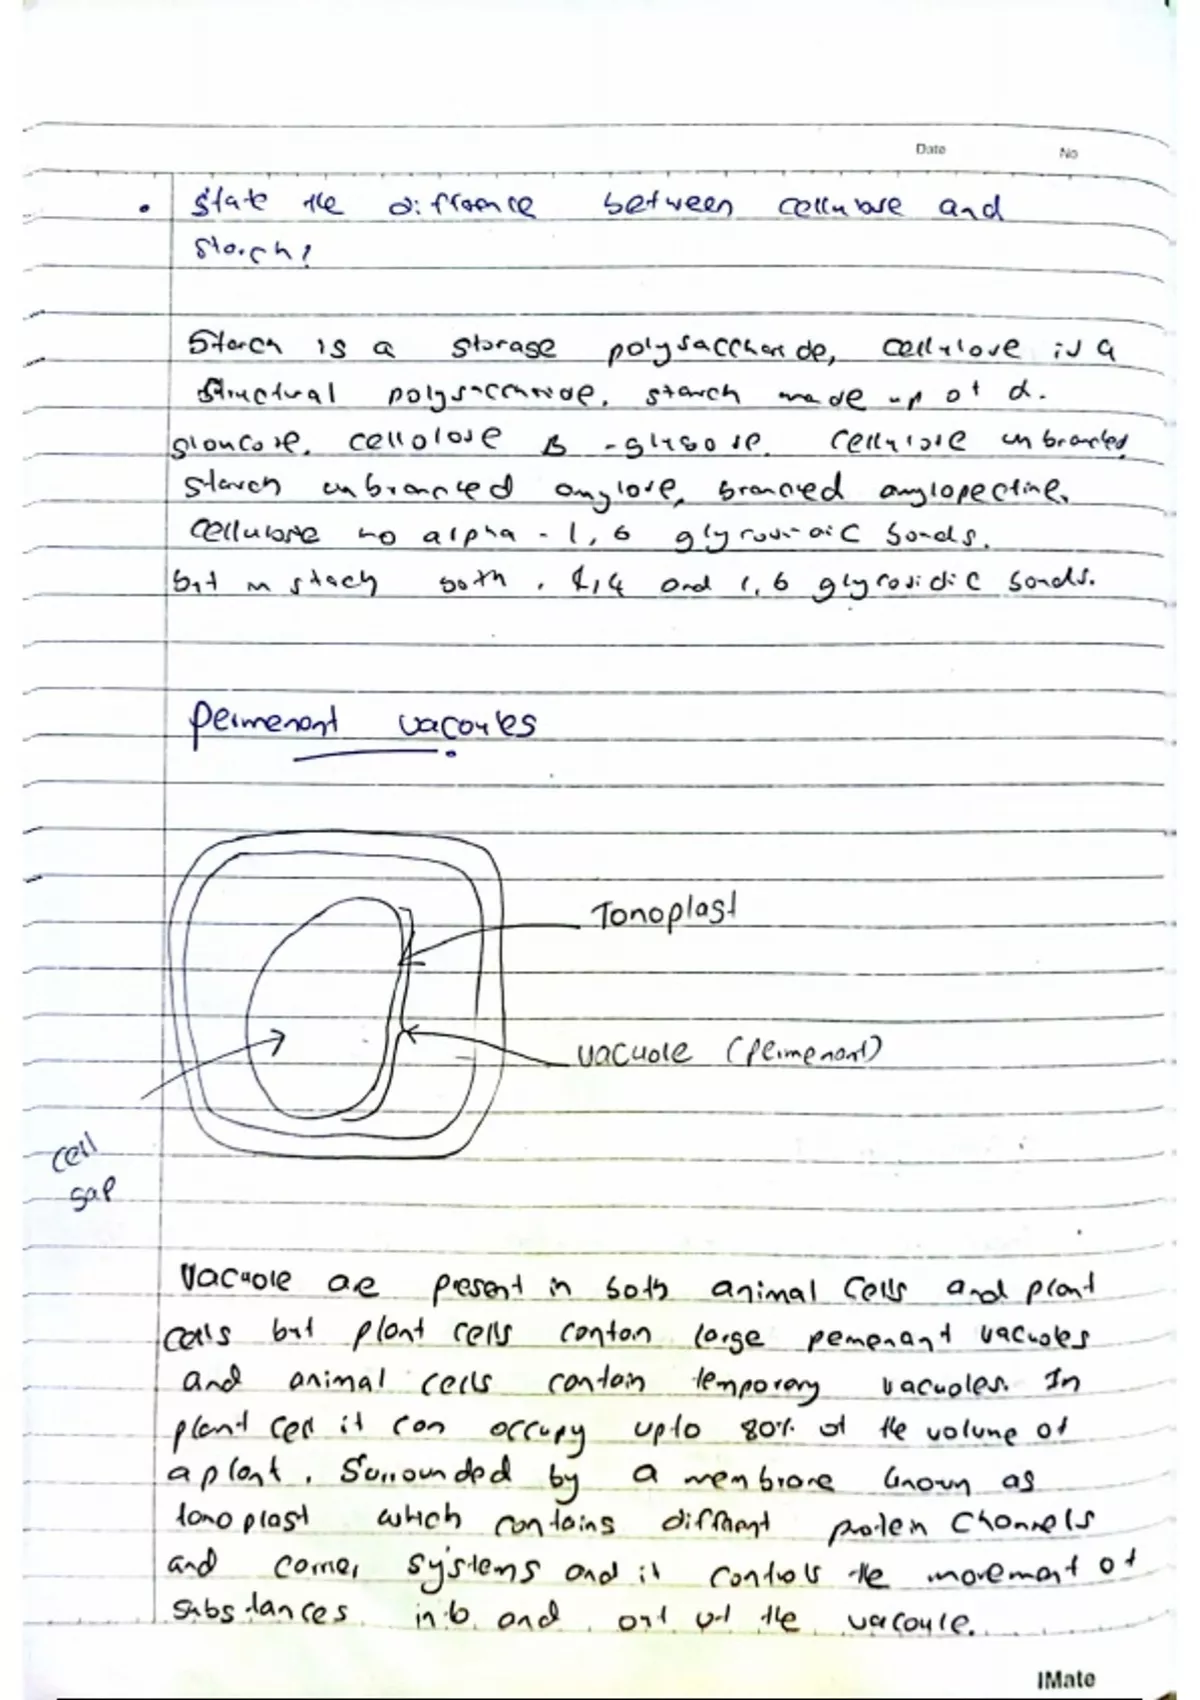 Date No
• State the differnce between cellulose and
Starch?
Starch is a storage polysaccharide, cellulose is a
Structural polysaccharide. starch made up of α.
gloucose. cellolose B - glucose. Cellulose unbranched,
starch unbranched amylose, branched amylopectine.
Cellulose no alpha - 1,6 glycosidic bonds.
but in stach both . 1,4 and 1,6 glycosidic bonds.
Permenant vacoules
Tonoplast
Vacuole (Permenant)
Cell
sap
Vacuole are present in both animal Cells and plant
cells but plant cells contan large pemenant vacuoles
and animal cells contain temporary vacuoles. In
plant cell it can occupy upto 80% of the volume of
a plant. Surrounded by a membrane known as
tonoplast which contains diffrent protein Channels
and carrier systems and it controls the movement of
Substances into and out of the vacoule.
IMate